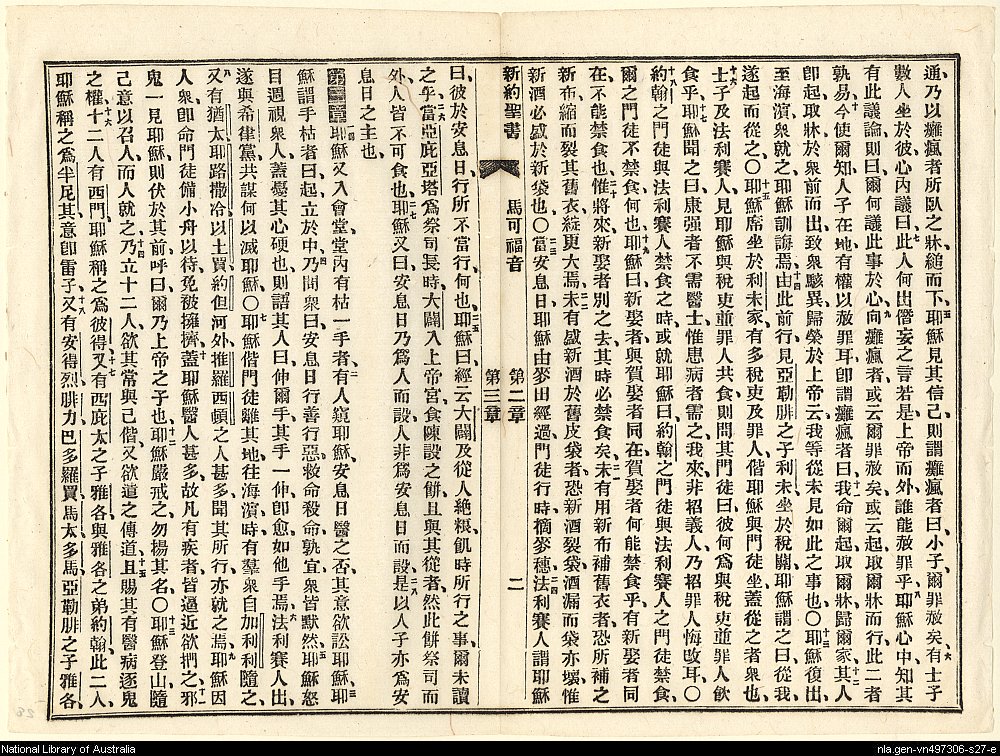 通乃以癱瘋者所臥之牀縋而下耶穌見其信己則謂癱瘋者曰小子爾罪赦矣有士子
數人坐於彼心內議曰此人何出僭妄之言若是上帝而外誰能赦罪乎耶穌心中知其
有此議論則曰爾何議此事於心向癱瘋者或云爾罪赦矣或云起取爾牀而行此二者
孰易今使爾知人子在地有權以赦罪耳卽謂癱瘋者曰我命爾起取爾牀歸爾家其人
卽起取牀於衆前而出致衆駭異歸榮於上帝云我等從未見如此之事也〇耶穌復出
至海濱衆就之耶穌訓誨焉由此前行見亞勒腓之子利未坐於稅關耶穌謂之曰從我
遂起而從之〇耶穌席坐於利未家有多稅吏及罪人偕耶穌與門徒坐蓋從之者衆也
士子及法利賽人見耶穌與稅吏並罪人共食則問其門徒曰彼何爲與稅吏並罪人飲
食乎耶穌聞之曰康强者不需醫士惟患病者需之我來非招義人乃招罪人悔改耳〇
約翰之門徒與法利賽人禁食之時或就耶穌曰約翰之門徒與法利賽人之門徒禁食
爾之門徒不禁食何也耶穌曰新娶者與賀娶者同在賀娶者何能禁食乎有新娶者同
在不能禁食也惟將來新娶者別之去其時必禁食矣未有用新布補舊衣者恐所補之
新布縮而裂其舊衣綻更大焉未有盛新酒於舊皮袋者恐新酒裂袋酒漏而袋亦壞惟
新酒必盛於新袋也〇當安息日耶穌由麥田經過門徒行時摘麥穗法利賽人謂耶穌
新約聖書 馬可福音 第二章 第三章 二
曰彼於安息日行所不當行何也耶穌曰經云大闢及從人絕糧飢時所行之事爾未讀
之乎當亞庇亞塔爲祭司長時大闢入上帝宮食陳設之餅且與其從者然此餅祭司而
外人皆不可食也耶穌又曰安息日乃爲人而設人非爲安息日而設是以人子亦爲安
息日之主也
第三章耶穌又入會堂堂內有枯一手者有人窺耶穌安息日醫之否其意欲訟耶穌耶
穌謂手枯者曰起立於中乃問衆曰安息日行善行惡救命殺命孰宜衆皆默然耶穌怒
目週視衆人蓋憂其心硬也則語其人曰伸爾手其手一伸卽愈如他手焉法利賽人出
遂與希律黨共謀何以滅耶穌〇耶穌偕門徒離其地往海濱時有羣衆自加利利隨之
又有猶太耶路撒冷以土買約但河外推羅西頓之人甚多聞其所行亦就之焉耶穌因
人衆卽命門徒備小舟以待免被擁擠蓋耶穌醫人甚多故凡有疾者皆逼近欲捫之邪
鬼一見耶穌則伏於其前呼曰爾乃上帝之子也耶穌嚴戒之勿揚其名〇耶穌登山隨
己意以召人而人就之乃立十二人欲其常與己偕又欲遣之傳道且賜其有醫病逐鬼
之權十二人有西門耶穌稱之爲彼得又有西庇太之子雅各與雅各之弟約翰此二人
耶穌稱之爲半尼其意卽雷子又有安得烈腓力巴多羅買馬太多馬亞勒腓之子雅各
National Library of Australia
nla.gen-vn497306-s27-e